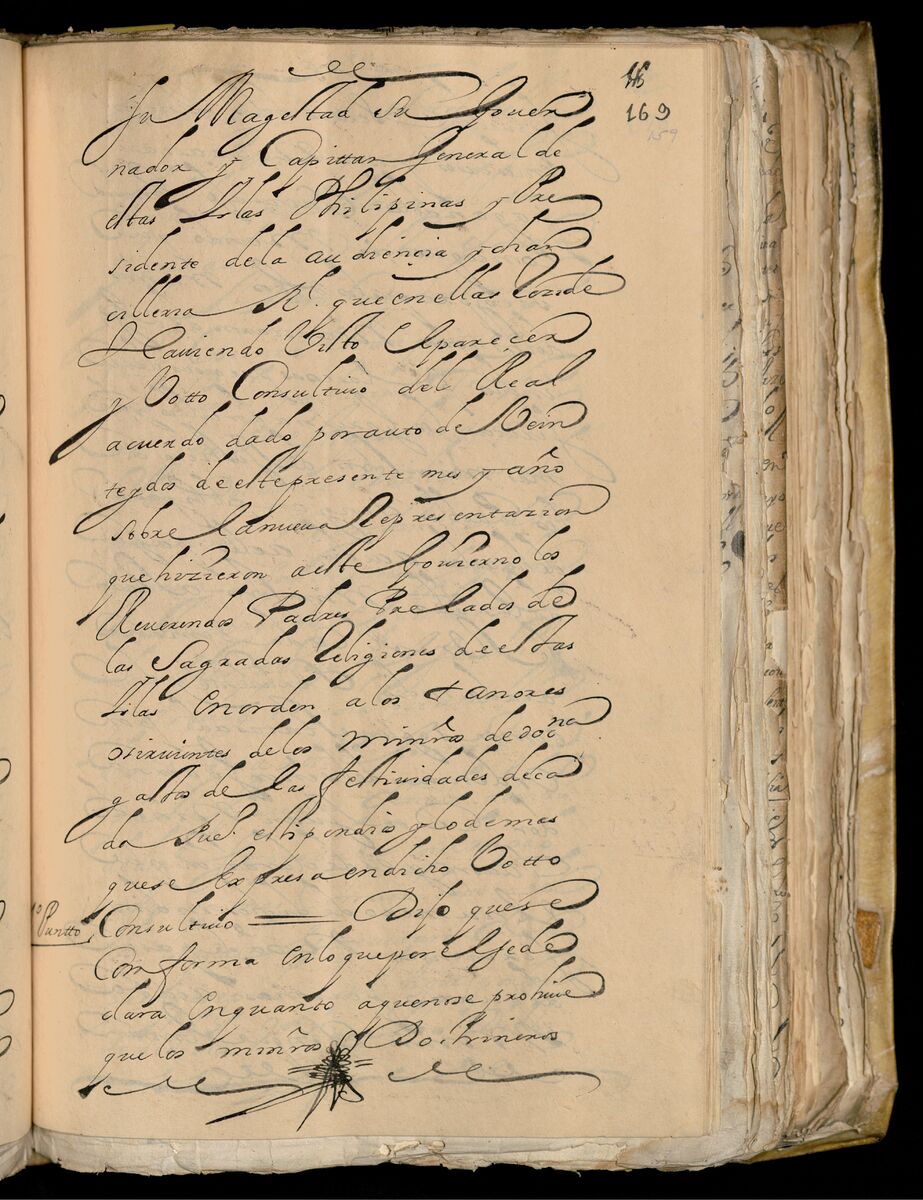 169
159
Su Magestad Su Gover
nador y Capittan General de
estas Islas Philipinas y Pre
sidente dela audiencia y chan
cilleria Rl. que en ellas Reside
Haviendo Visto el parecer
y Votto Consultivo del Real
acuerdo dado por auto de Vein
te y dos de este presente mes y año
sobre la nueva Representazion
que hizieron a este Govierno los
Reverendos Padres Prelados de
las Sagradas Religiones de estas
Islas en orden a los tanores
o sirvientes de los minros de docna
gastos de las festividades de ca
da Pueo. estipendio y lo demas
que se expresa en dicho Votto
1o Puntto
Consultivo = Dijo que se
Comforma en lo que por el se de
clara en quanto a que no se prohive
que los minros Doctrineros